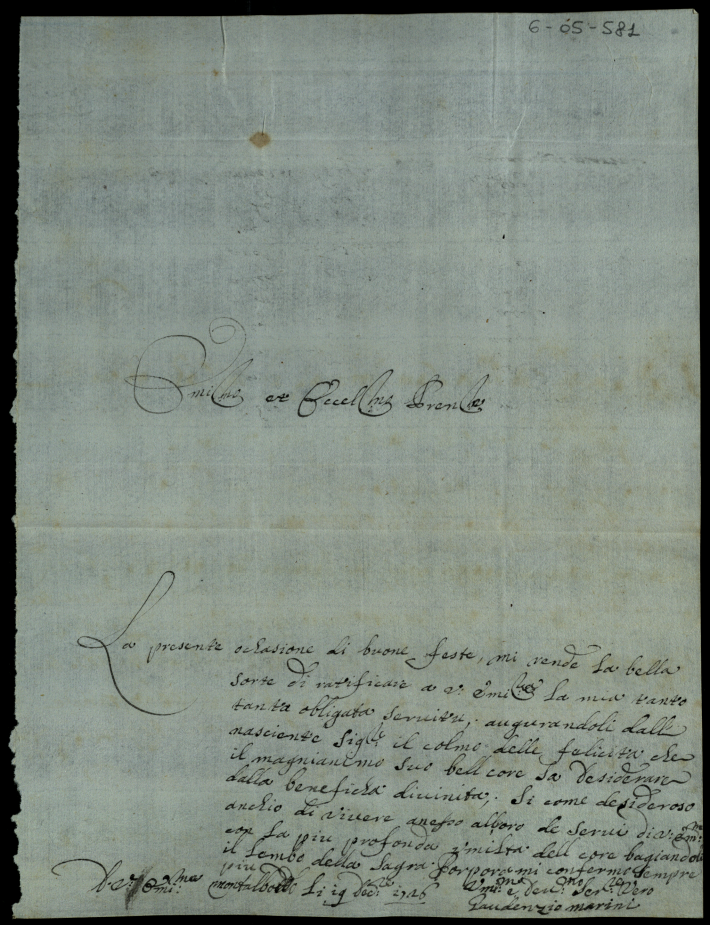 6-05-581
Emin.mo et Eccell.mo Prenc.e
La presente ochasione di buone feste, mi rende la bella
sorte di ratificare a V. Emi.za la mia tanto
tanta obligata servitu, augurandoli dall
nasciente Sig.re il colmo delle felicita che
il magnianimo suo bell core sa desiderare
dalla beneficha divinita, Si come desideroso
anchio di vivere alboro de servi di V. Em.
con la piu profonda umilta dell core bagiandoli
il lembo della Sagra Porpora mi confermo sempre
piu
D. V. Em.
Montalbodo li 19 Dec.
Um.mo e Dev.mo Ser. vero
Gaudenzio Marini